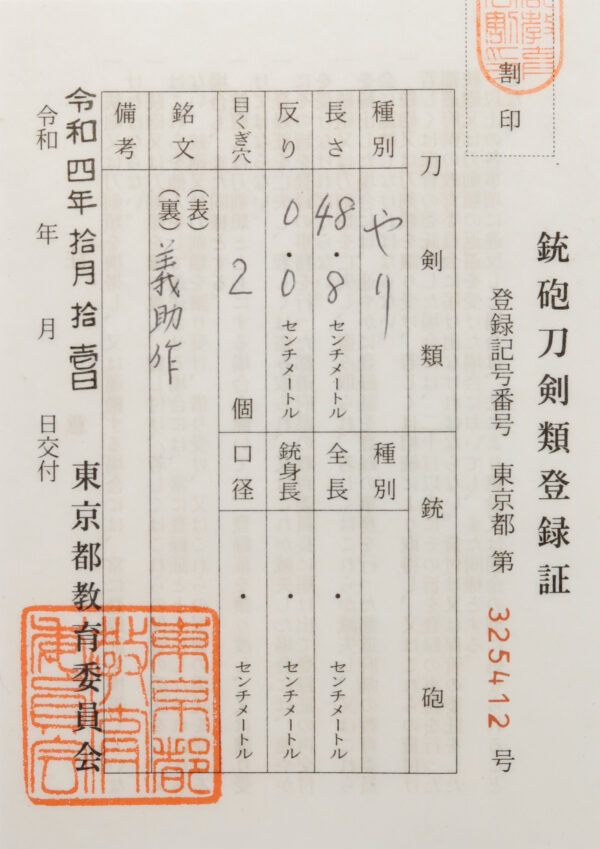 割印
銃砲刀剣類登録証
登録記号番号 東京都 第 325412 号
刀剣類
銃砲
種別 やり
種別
長さ 48.8 センチメートル
全長 ・ センチメートル
反り 0.0 センチメートル
銃身長 ・ センチメートル
目くぎ穴 2 個
口径 ・ センチメートル
銘文 (表)
(裏) 義助作
備考
令和四年拾月拾壹日
令和 年 月 日交付
東京都教育委員会
東京都
教育
委員会